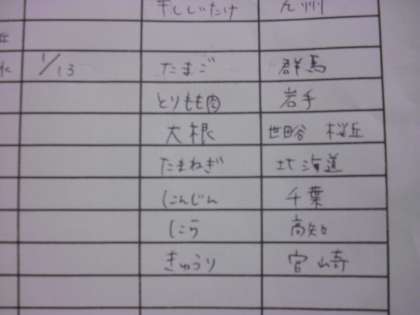 干ししいたけ 九州
水 1/13 たまご 群馬
とりもも肉 岩手
大根 世田谷 桜丘
たまねぎ 北海道
にんじん 千葉
にら 高知
きゅうり 宮崎